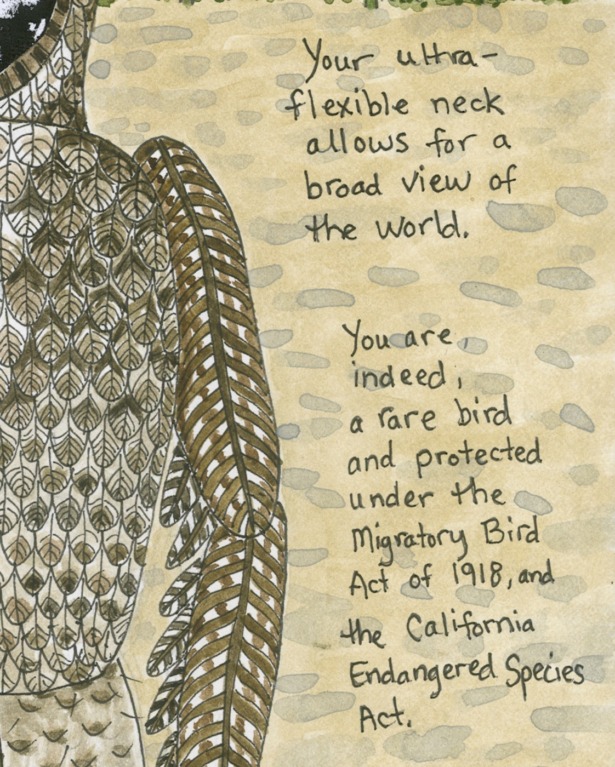 Your ultra-
flexible neck
allows for a
broad view of
the world.
You are,
indeed,
a rare bird
and protected
under the
Migratory Bird
Act of 1918, and
the California
Endangered Species
Act.